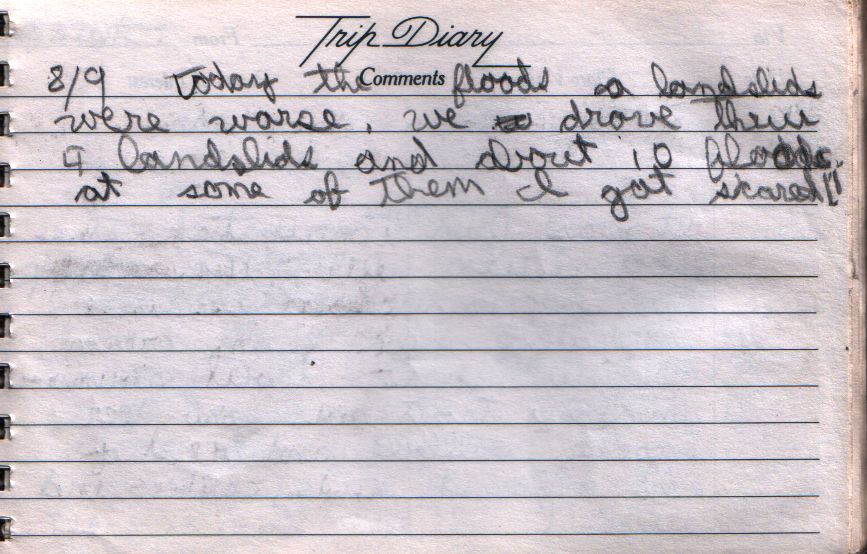 Trip Diary
Comments
8/9 Today the floods a landslids
were warse, we drove thru
4 landslids and about 10 floods.
at some of them I got scared!!